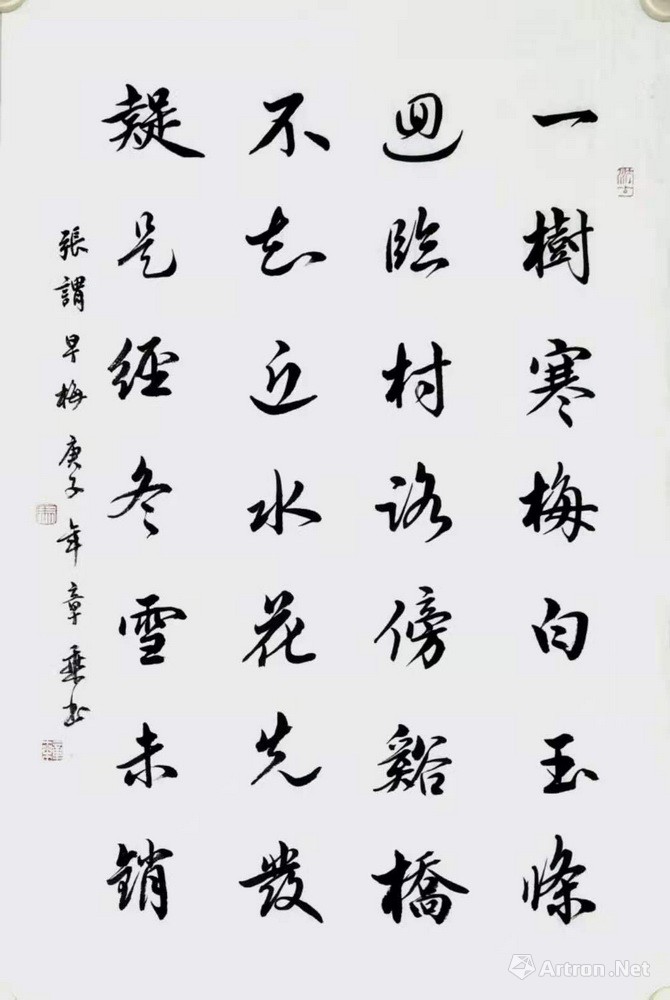 一樹寒梅白玉條
迴臨村路傍谿橋
不知近水花先發
疑是經冬雪未銷
張謂早梅 庚子年章乘书
Artron.Net